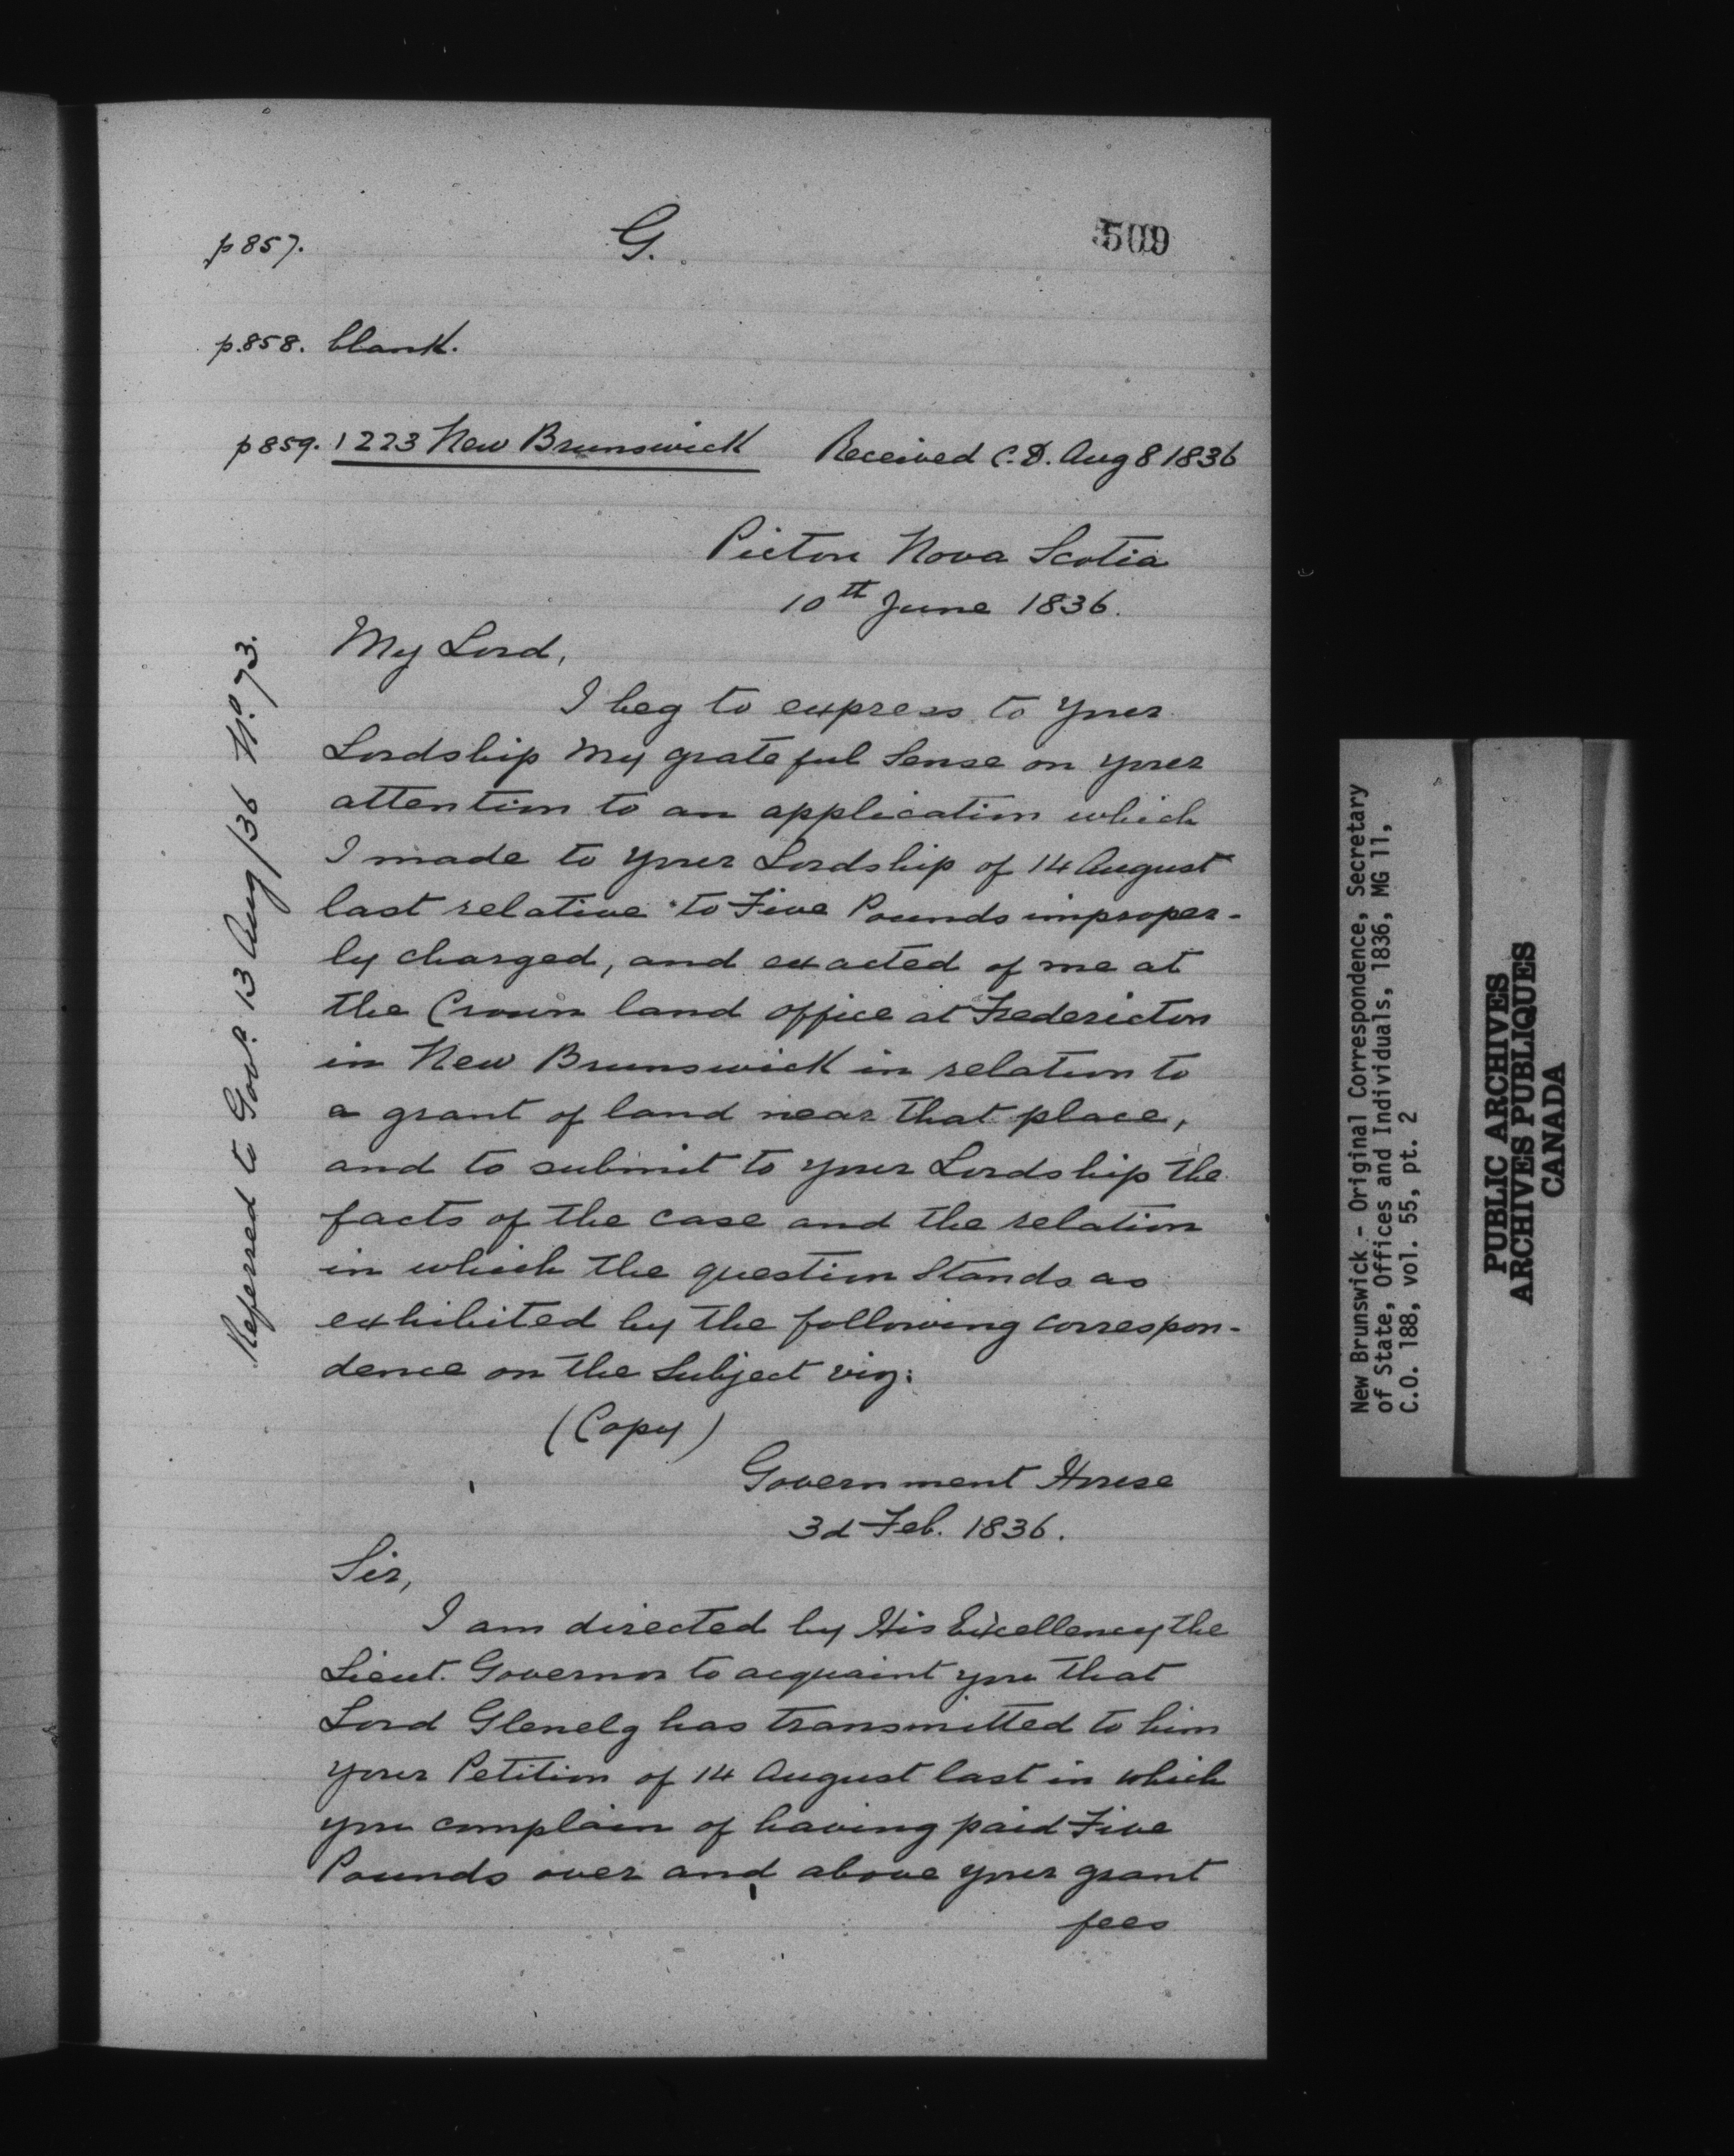 p857.
G.
509
p.858. blank.
p859. 1223 New Brunswick Received C.D. Aug 8 1836
Picton Nova Scotia
10th June 1836.
My Lord,
I beg to express to your
Lordship my grateful Sense on your
attention to an application which
I made to your Lordship of 14 August
last relative to Five Pounds improper-
ly charged, and exacted of me at
the Crown land office at Fredericton
in New Brunswick in relation to
a grant of land near that place,
and to submit to your Lordship the
facts of the case and the relation
in which the question stands as
exhibited by the following correspon-
dence on the Subject viz:
(Copy)
Government House
3d Feb. 1836.
Sir,
I am directed by His Excellency the
Lieut. Governor to acquaint you that
Lord Glenelg has transmitted to him
your Petition of 14 August last in which
you complain of having paid Five
Pounds over and above your grant
fees
Referred to Govr. 13 Aug/36 No. 73.
New Brunswick - Original Correspondence, Secretary
of State, Offices and Individuals, 1836, MG 11,
C.O. 188, vol. 55, pt. 2
PUBLIC ARCHIVES
ARCHIVES PUBLIQUES
CANADA